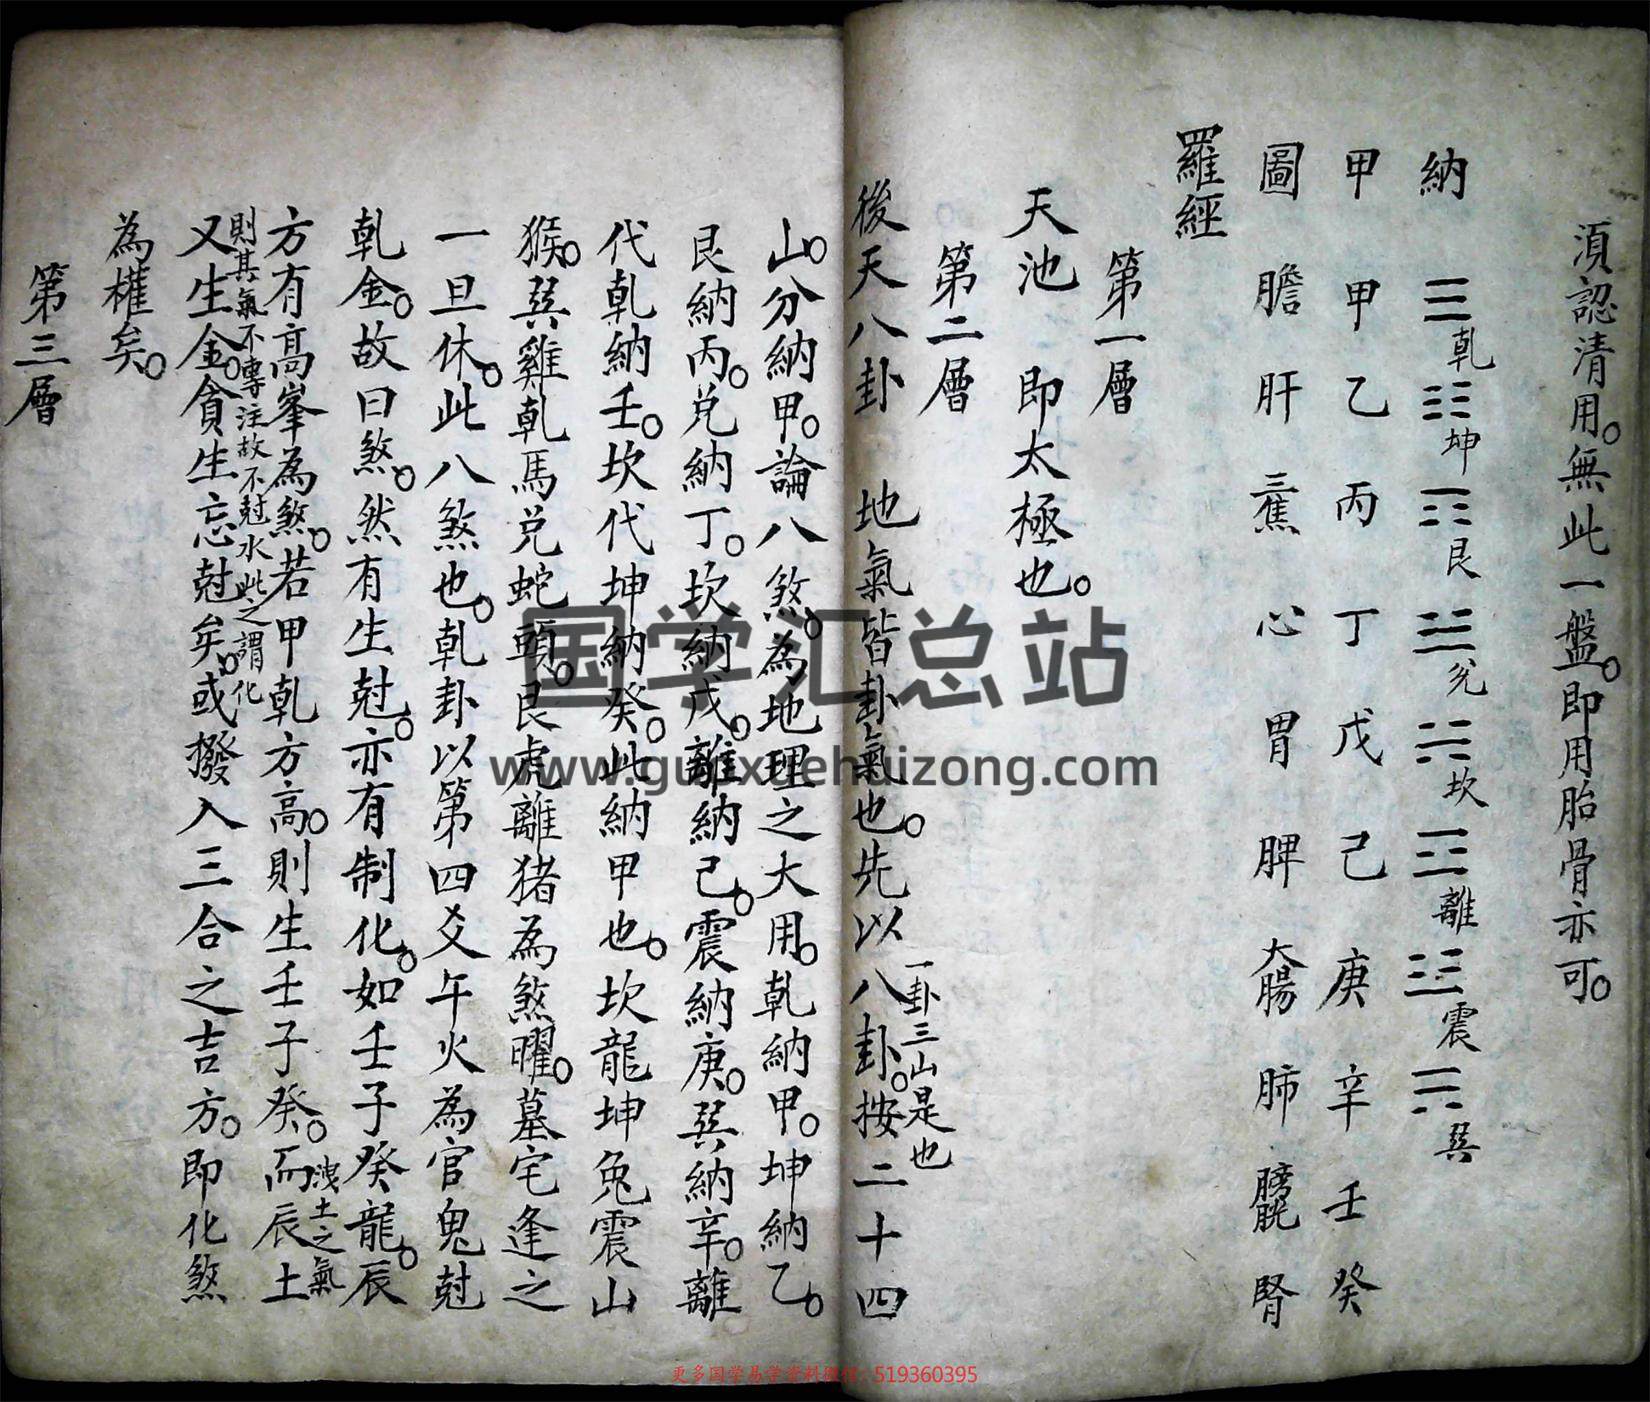 須認清用。無此一盤。即用胎骨亦可。
納 ☰乾 ☷坤 ☶艮 ☱兌 ☵坎 ☲離 ☳震 ☴巽
甲 甲 乙 丙 丁 戊 己 庚 辛 壬 癸
圖 膽 肝 三蕉 心 胃 脾 大腸 肺 膀胱 腎
羅經
第一層
天池 即太極也。
第二層
後天八卦 地氣皆卦氣也。先以八卦。按二十四
一卦三山是也
山。分納甲。論八煞。為地理之大用。乾納甲。坤納乙。
艮納丙。兌納丁。坎納戊。離納己。震納庚。巽納辛。離
代乾納壬。坎代坤納癸。此納甲也。坎龍坤兔震山
猴。巽雞乾馬兌蛇頭。艮虎離猪為煞曜。墓宅逢之
一旦休。此八煞也。乾卦以第四爻午火為官鬼尅
乾金。故曰煞。然有生尅。亦有制化。如壬子癸龍。辰
方有高峯為煞。若甲乾方高。則生壬子癸。而辰土
洩土之氣
則其氣不專注故不尅水此之謂化
又生金。貪生忘尅矣。或撥入三合之吉方。即化煞
為權矣。
第三層
国学汇总站
www.guoxuehuizong.com
更多国学易学资料微信：519360395